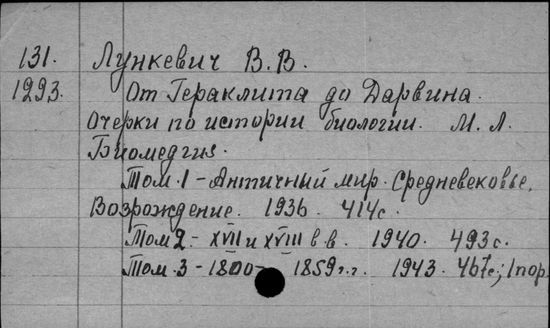 131. Лункевич В. В.
1293. От Гераклита до Дарвина.
Очерки по истории биологии. М. Л.
Биомедгиз.
Том. 1 - Античный мир. Средневековье.
Возрождение. 1936. 414с.
Том 2 - XVII и XVIII в.в. 1940. 493с.
Том. 3 - 1800 - 1859г.г. 1943. 467с; 1 пор.